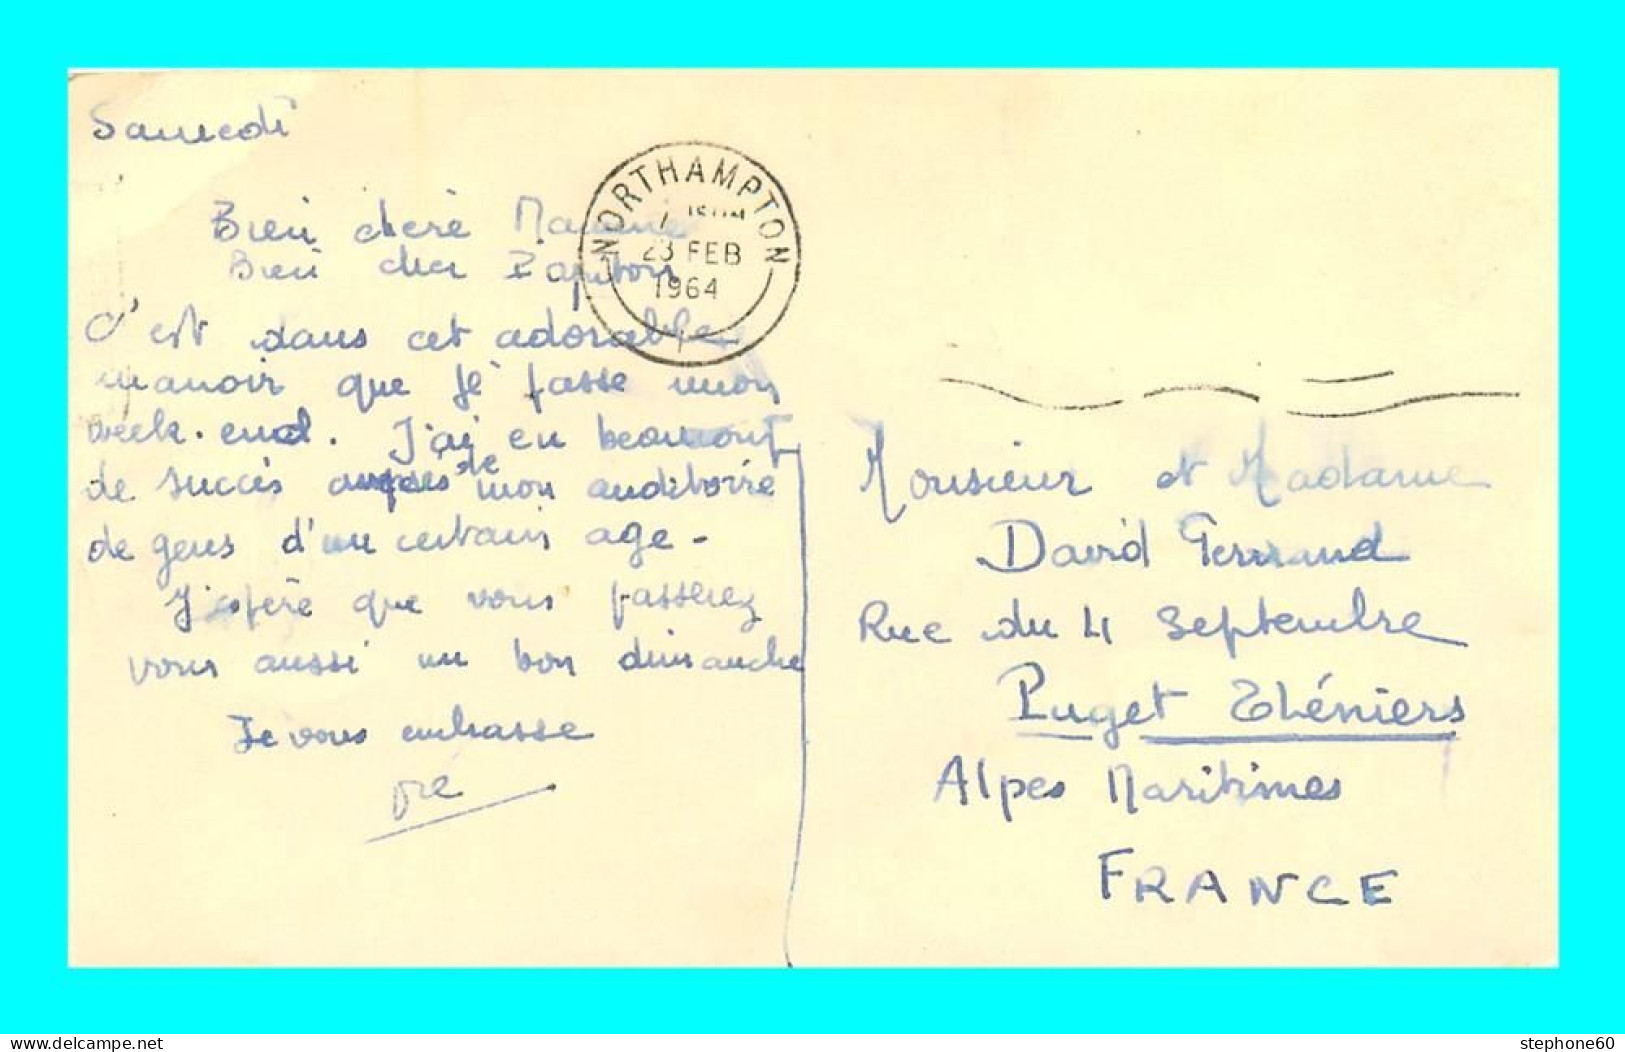 Samedi
Bien chère Mamie
Bien cher Papitou
C'est dans cet adorable
manoir que je passe mon
week-end. J'ai eu beaucoup
de succès auprès de mon auditoire
de gens d'un certain age -
J'espère que vous passerez
vous aussi un bon dimanche
Je vous embrasse
NORTHAMPTON
23 FEB
1964
Monsieur et Madame
David Fernand
Rue du 4 Septembre
Puget Théniers
Alpes Maritimes
FRANCE
delcampe.net
stephone60